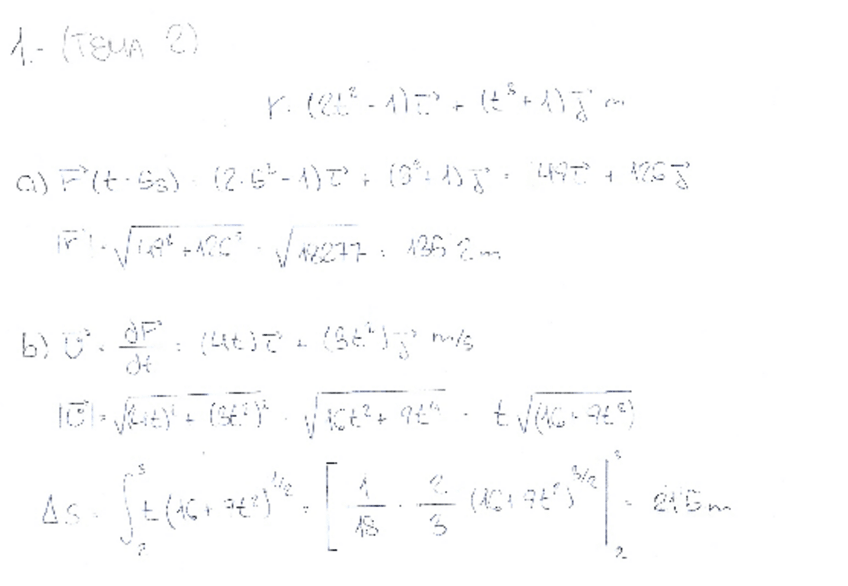 1.- (TEMA 2)
r = (2t² - 1) i⃗ + (t³ + 1) j⃗ m
a) r⃗ (t = 5s) = (2·5² - 1) i⃗ + (5³ + 1) j⃗ = 49 i⃗ + 126 j⃗
|r⃗| = √(49² + 126²) = √18277 = 135'2 m
b) v⃗ = dr⃗/dt = (4t) i⃗ + (3t²) j⃗ m/s
|v⃗| = √((4t)² + (3t²)²) = √(16t² + 9t⁴) = t √(16 + 9t²)
Δs = ∫₂³ t (16 + 9t²)^1/2 = [ 1/18 · 2/3 (16 + 9t²)^3/2 |₂³ = 21'5 m